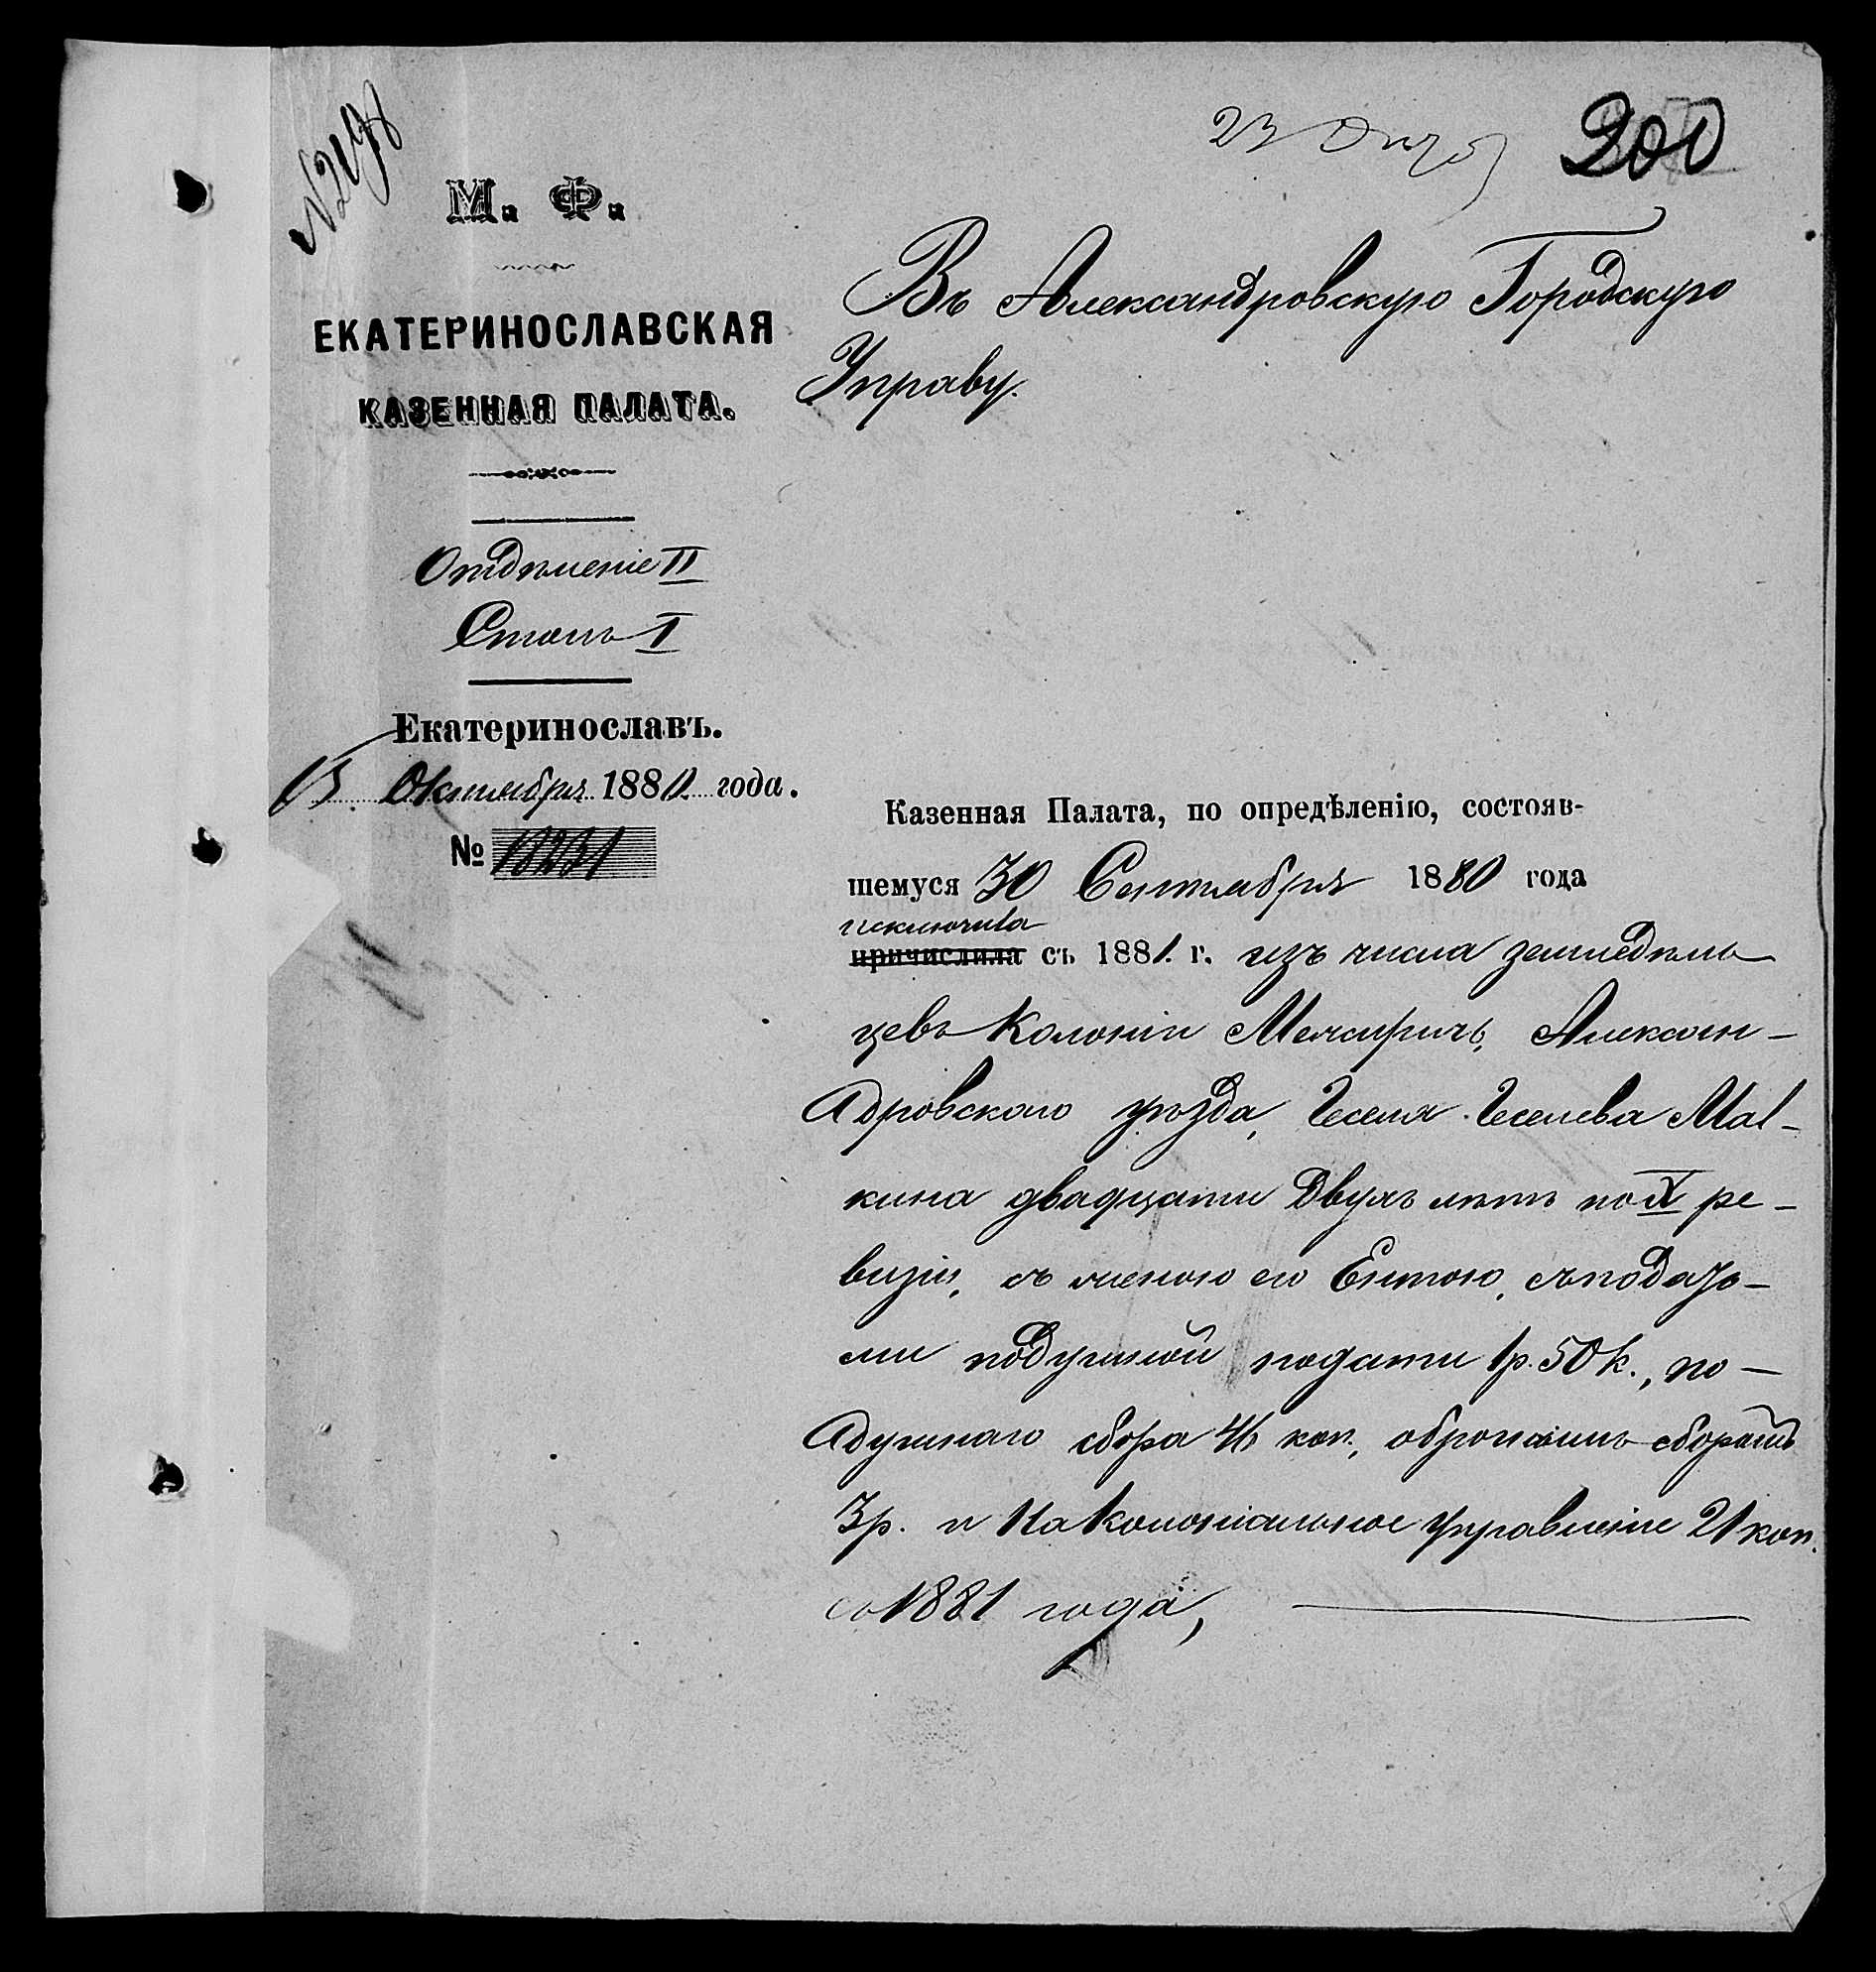 № 2198
23 Октяб
200
М. Ф.
ЕКАТЕРИНОСЛАВСКАЯ
КАЗЕННАЯ ПАЛАТА.
Отдѣленіе II
Столъ I
Екатеринославъ.
13 Октября 1880 года.
№ 18231
Въ Александровскую Городскую
Управу.
Казенная Палата, по опредѣленію, состояв-
шемуся 30 Сентября 1880 года
исключила
причислила съ 1881 г. изъ числа земледѣль
цевъ Колоніи Межиричь, Алексан-
дровскаго уѣзда, Геселя Геселева Мал-
кина двадцати двухъ лѣтъ по X ре-
визіи, съ женою его Ентою, съ податьо-
ми подушной подати 1 р. 50 к., по-
душнаго сбора 46 коп., оброчнымъ сборомъ
3 р. и На Колоніальное Управленіе 21 коп.
съ 1881 года,